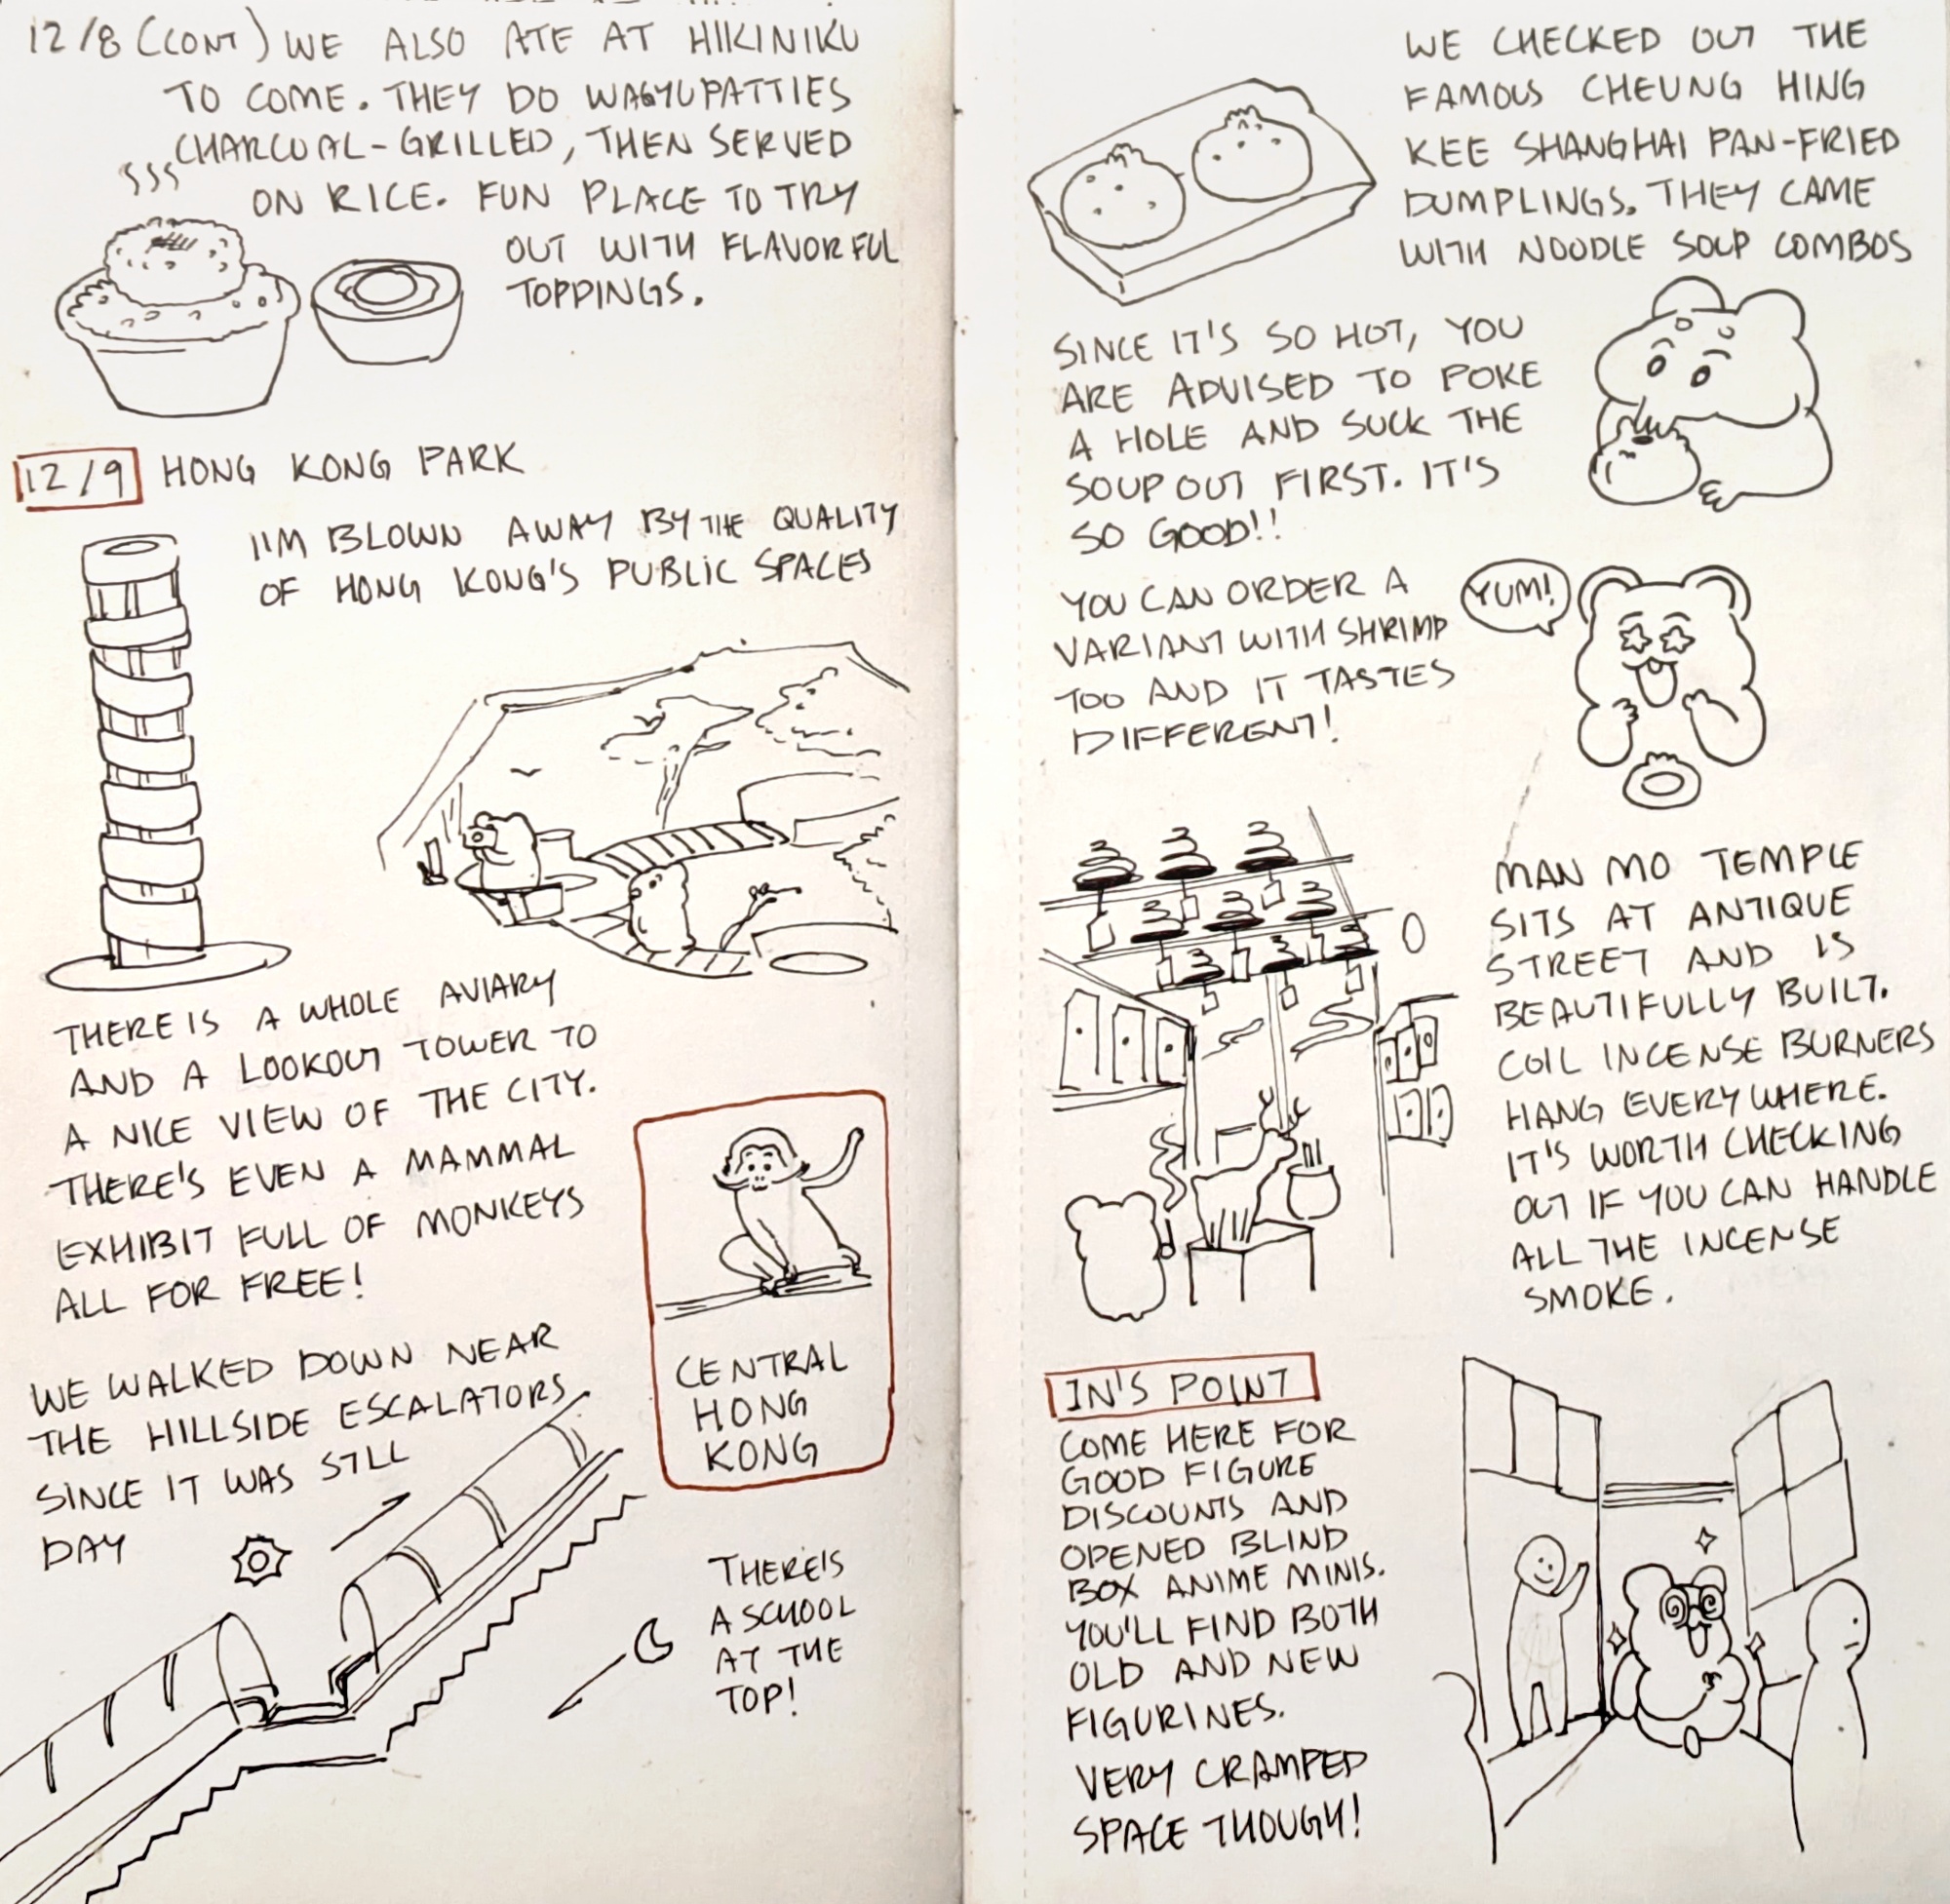 12/8 (CONT) WE ALSO ATE AT HIKINIKU
TO COME. THEY DO WAGYU PATTIES
CHARCOAL-GRILLED, THEN SERVED
ON RICE. FUN PLACE TO TRY
OUT WITH FLAVORFUL
TOPPINGS.
12/9 HONG KONG PARK
I'M BLOWN AWAY BY THE QUALITY
OF HONG KONG'S PUBLIC SPACES
THERE IS A WHOLE AVIARY
AND A LOOKOUT TOWER TO
A NICE VIEW OF THE CITY.
THERE'S EVEN A MAMMAL
EXHIBIT FULL OF MONKEYS
ALL FOR FREE!
CENTRAL
HONG
KONG
WE WALKED DOWN NEAR
THE HILLSIDE ESCALATORS
SINCE IT WAS STILL
DAY
THERE'S
A SCHOOL
AT THE
TOP!
WE CHECKED OUT THE
FAMOUS CHEUNG HING
KEE SHANGHAI PAN-FRIED
DUMPLINGS. THEY CAME
WITH NOODLE SOUP COMBOS
SINCE IT'S SO HOT, YOU
ARE ADVISED TO POKE
A HOLE AND SUCK THE
SOUP OUT FIRST. IT'S
SO GOOD!!
YOU CAN ORDER A
VARIANT WITH SHRIMP
TOO AND IT TASTES
DIFFERENT!
YUM!
MAN MO TEMPLE
SITS AT ANTIQUE
STREET AND IS
BEAUTIFULLY BUILT.
COIL INCENSE BURNERS
HANG EVERYWHERE.
IT'S WORTH CHECKING
OUT IF YOU CAN HANDLE
ALL THE INCENSE
SMOKE.
IN'S POINT
COME HERE FOR
GOOD FIGURE
DISCOUNTS AND
OPENED BLIND
BOX ANIME MINIS.
YOU'LL FIND BOTH
OLD AND NEW
FIGURINES.
VERY CRAMPED
SPACE THOUGH!